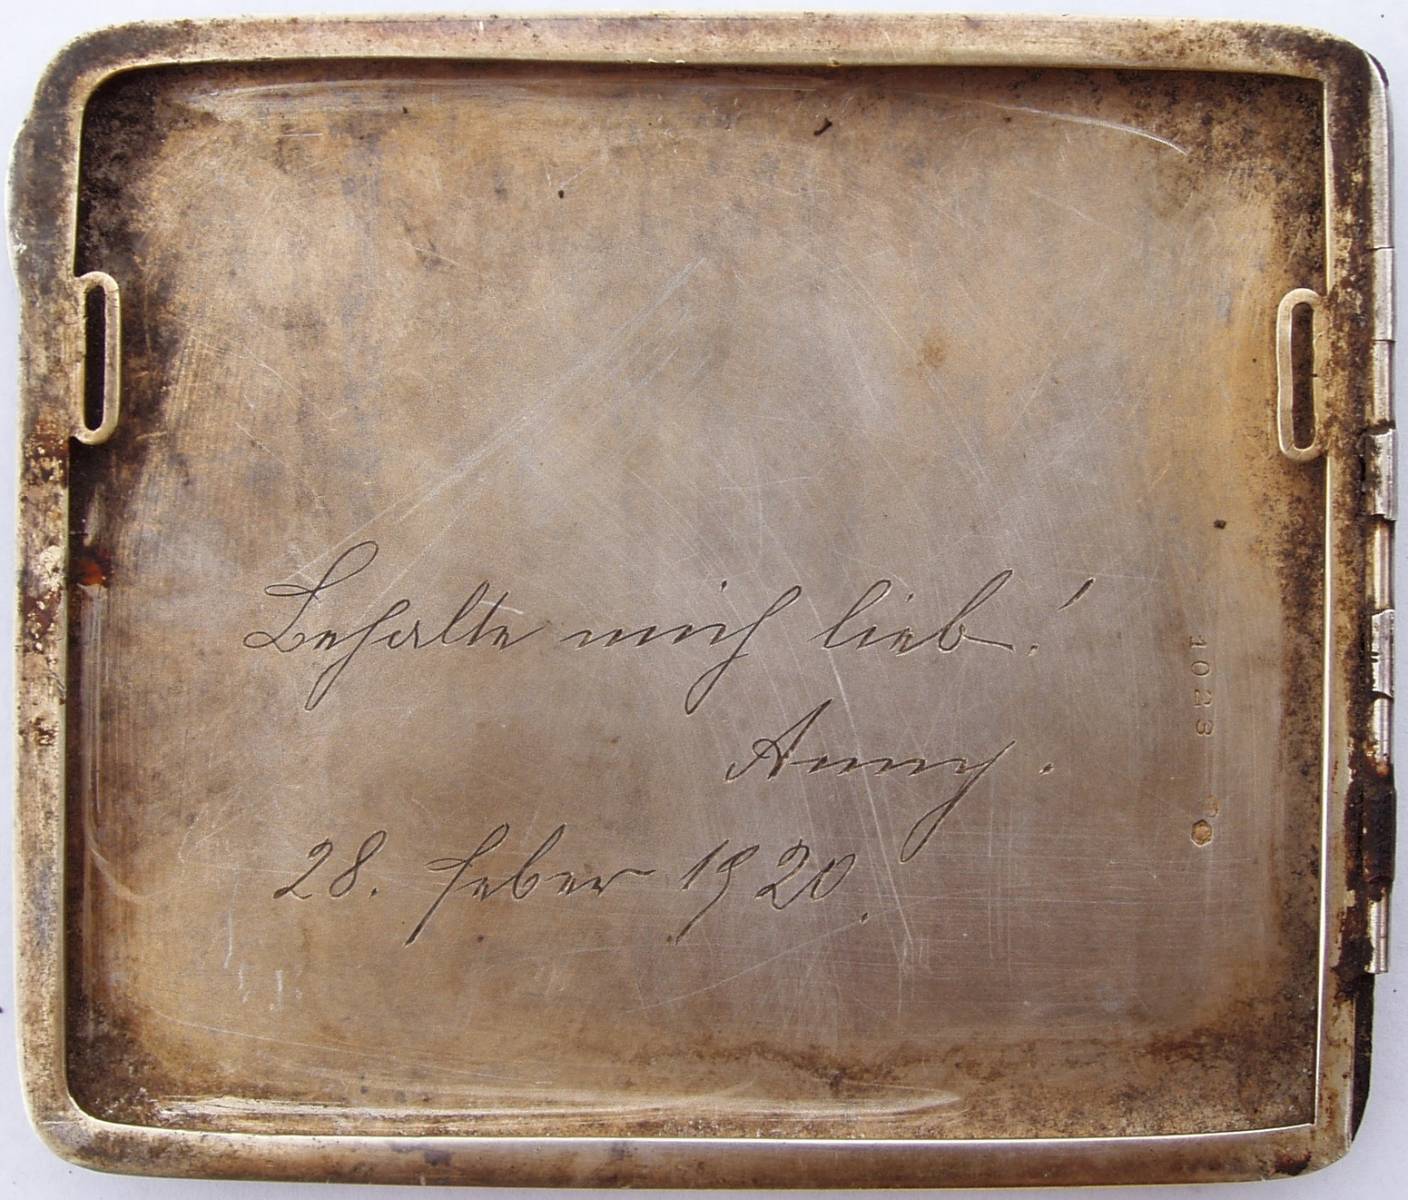 Behalte mich lieb!
Anny.
28. Feber 1920.
1023